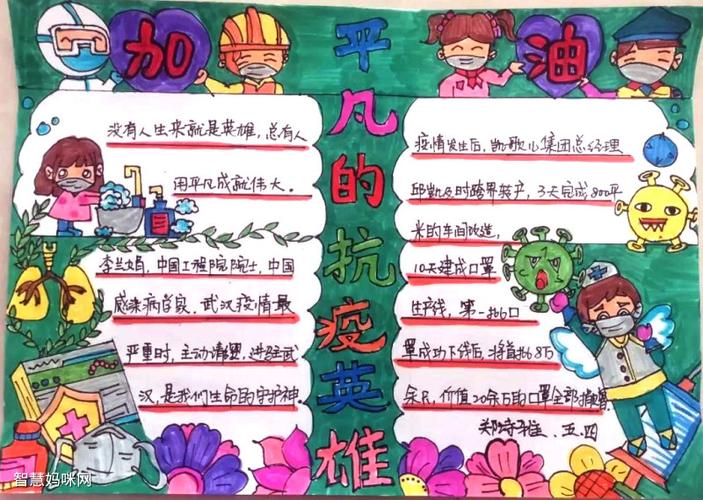 加
油
平凡的抗疫英雄
没有人生来就是英雄，总有人
用平凡成就伟大。
李兰娟，中国工程院院士，中国
感染病学家。武汉疫情最
严重时，主动请缨，进驻武
汉，是我们生命的守护神。
疫情发生后，凯歌儿集团总经理
邱凯及时跨界转产，3天完成800平
米的车间改造，
10天建成口罩
生产线，第一批口
罩成功下线后，将首批6.8万
余只，价值20余万的口罩全部捐赠。
五.四
智慧妈咪网